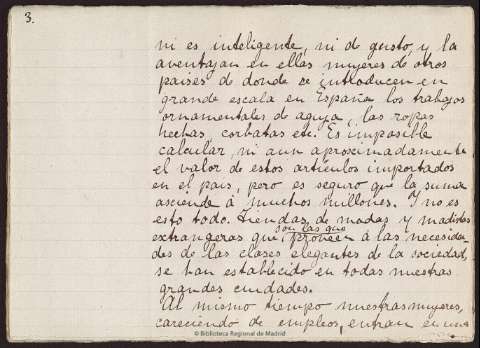 3.
ni es inteligente, ni de gusto, y la
aventajan en ellas mujeres de otros
paises de donde se introducen en
grande escala en España los trabajos
ornamentales de aguja, las ropas
hechas, corbatas etc. Es imposible
calcular, ni aun aproximadamente
el valor de estos artículos importados
en el pais, pero es seguro que la suma
asciende á muchos millones. Y no es
esto todo. Tiendas de modas y modistas
son las que
extrangeras que proveen á las necesida-
des de las clases elegantes de la sociedad,
se han establecido en todas nuestras
grandes ciudades.
Al mismo tiempo nuestras mujeres,
careciendo de empleos, entran en una
© Biblioteca Regional de Madrid